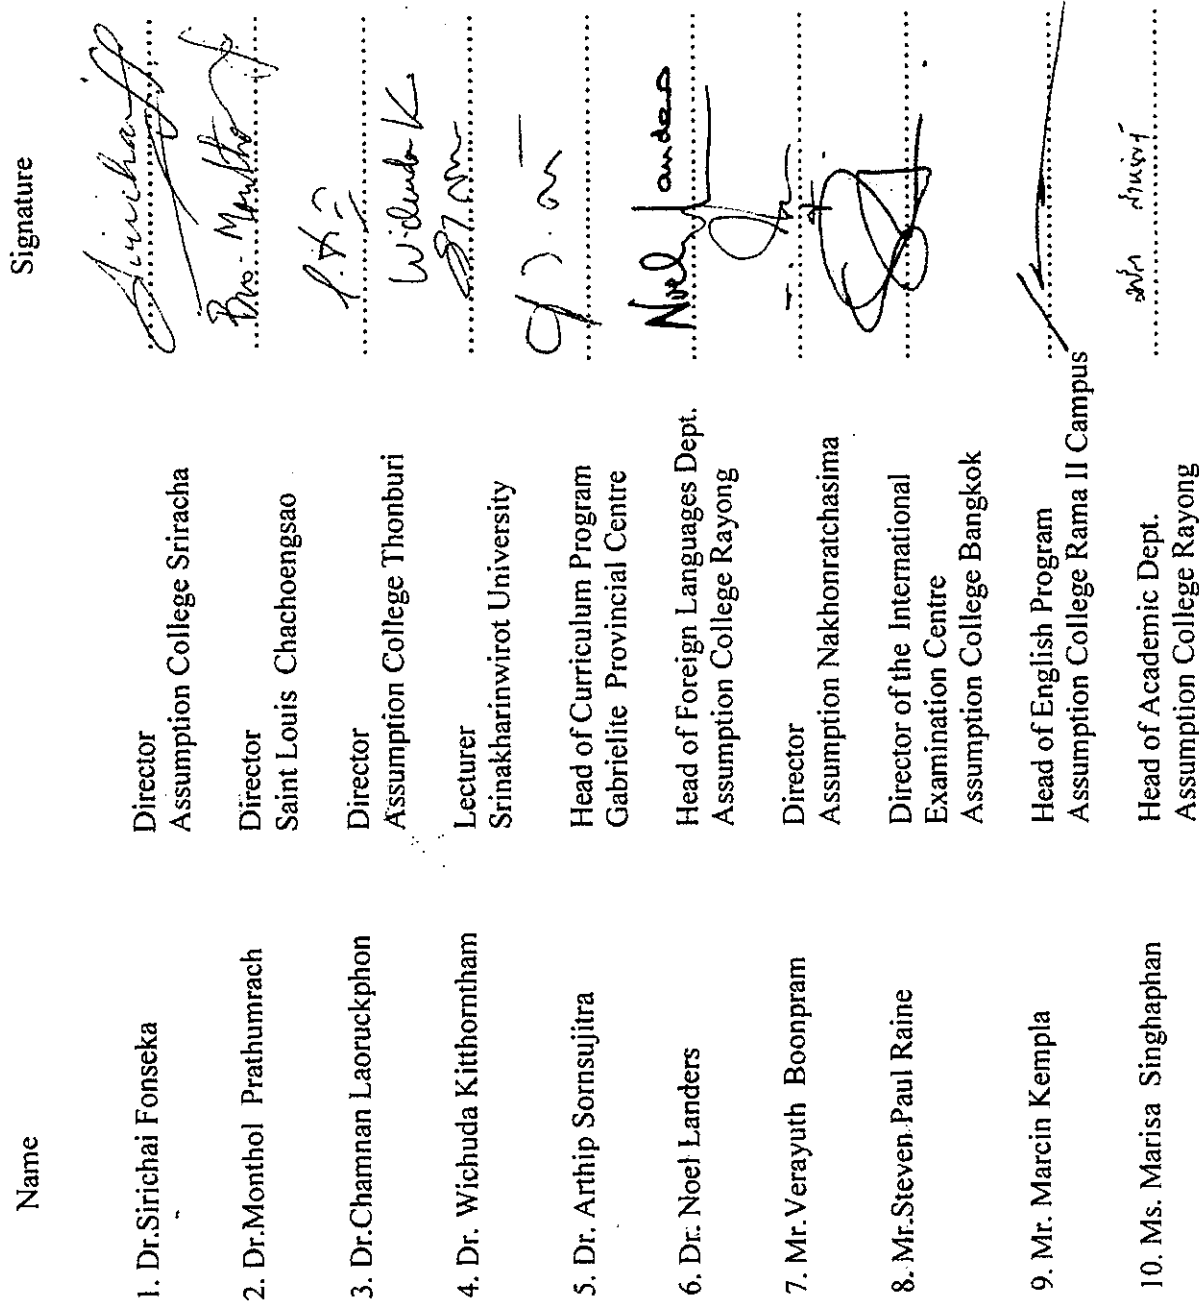 Name Signature
1. Dr.Sirichai Fonseka Director Sirichai
Assumption College Sriracha
2. Dr.Monthol Prathumrach Director Bro. Monthol
Saint Louis Chachoengsao
3. Dr.Chamnan Laoruckphon Director
Assumption College Thonburi
4. Dr. Wichuda Kitthorntham Lecturer Wichuda K.
Srinakharinwirot University
5. Dr. Arthip Sornsujitra Head of Curriculum Program
Gabrielite Provincial Centre
6. Dr. Noel Landers Head of Foreign Languages Dept. Noel Landers
Assumption College Rayong
7. Mr.Verayuth Boonpram Director
Assumption Nakhonratchasima
8. Mr.Steven Paul Raine Director of the International
Examination Centre
Assumption College Bangkok
9. Mr. Marcin Kempla Head of English Program
Assumption College Rama II Campus
10. Ms. Marisa Singhaphan Head of Academic Dept.
Assumption College Rayong